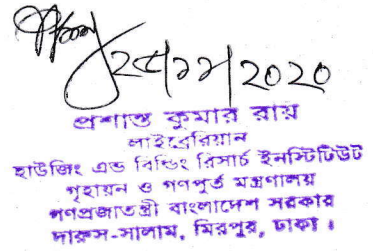 ২০২০
প্রশান্ত কুমার রায়
লাইব্রেরিয়ান
হাউজিং এন্ড বিল্ডিং রিসার্চ ইনস্টিটিউট
গৃহায়ন ও গণপূর্ত মন্ত্রণালয়
গণপ্রজাতন্ত্রী বাংলাদেশ সরকার
দারুস-সালাম, মিরপুর, ঢাকা ।